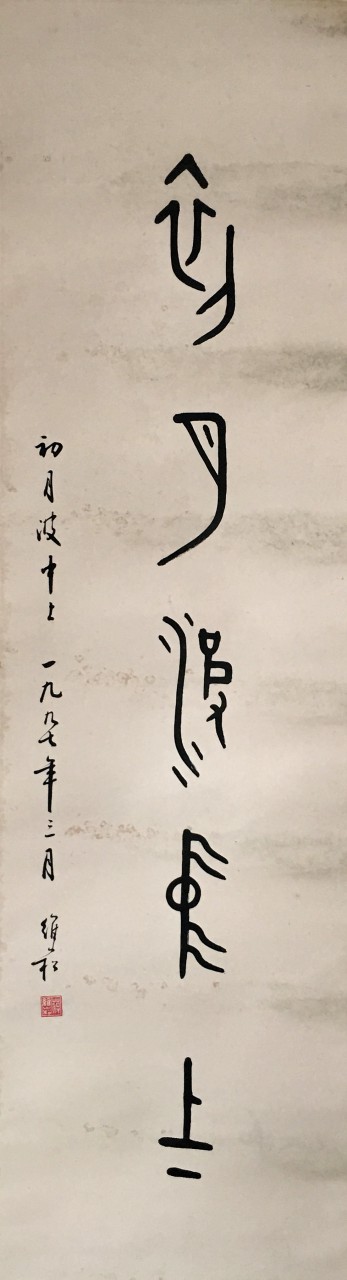 初月波中上
初月波中上 一九九七年三月 維松